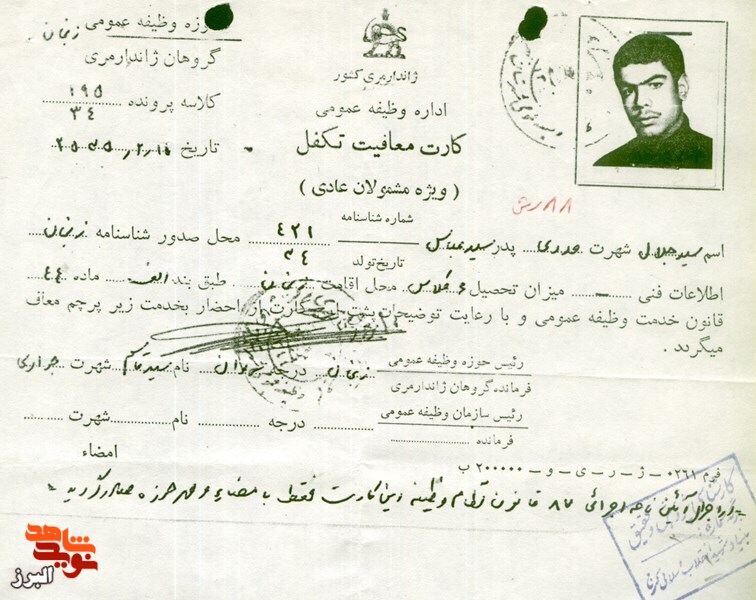 حوزه وظیفه عمومی زنجان
گروهان ژاندارمری
کلاسه پرونده ۱۹۵
۳۴
تاریخ
ژاندارمری کشور
اداره وظیفه عمومی
کارت معافیت تکفل
( ویژه مشمولان عادی )
شماره شناسنامه
اسم سید جلال شهرت پدر سید عباس ۴۲۱ محل صدور شناسنامه زنجان
تاریخ تولد ۳۴
اطلاعات فنی — میزان تحصیل ۶ کلاس محل اقامت زنجان طبق بند الف ماده ۴۴
قانون خدمت وظیفه عمومی و با رعایت توضیحات پشت این کارت از احضار بخدمت زیر پرچم معاف
میگردد .
رئیس حوزه وظیفه عمومی زنجان درجه نام شهرت
فرمانده گروهان ژاندارمری
رئیس سازمان وظیفه عمومی درجه نام شهرت
فرمانده
امضاء
فرم ۰۲۶۱ - ژ - ر - ی - و - ۲۰۰۰۰۰ ب
آئین نامه اجرائی ۸۷ قانون نظام وظیفه این کارت فقط با امضاء و مهر حوزه صادر گردید
نوید شاهد
البرز